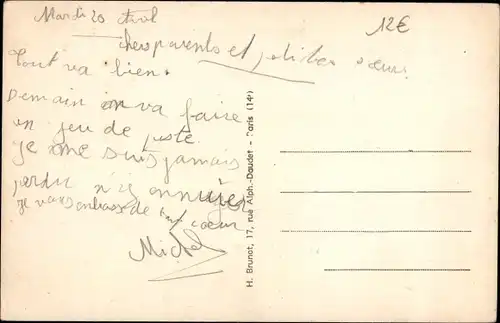 Mardi 23 Avril
12€
chers parents et petites sœurs
Tout va bien.
Demain on va faire
un jeu de piste
je me suis jamais
perdu n'y ennuyer
je vous embrasse de tout cœur
Michel
H. Brunot, 17, rue Alph.-Daudet - Paris (14ᵉ)